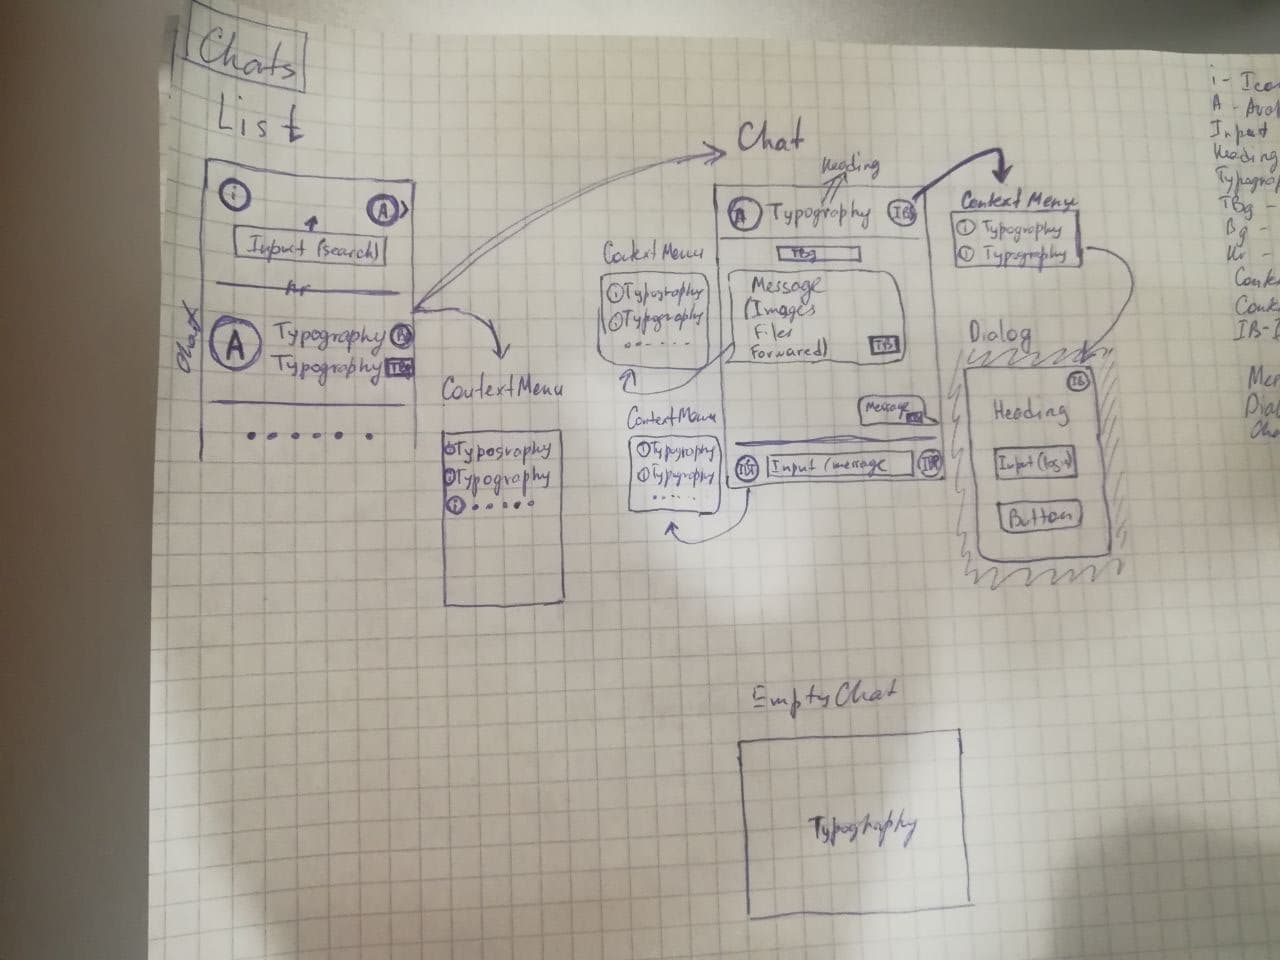 Chats
List
i
A
Input (search)
hr
Chat
A
Typography
Typography
ContextMenu
Typography
Typography
i
Chat
Heading
A
Typography
IB
TBg
Message
(Images
Files
Forwared)
TB
Message
Input (message
ContextMenu
i Typography
i Typography
ContextMenu
i Typography
i Typography
ContextMenu
i Typography
i Typography
Dialog
IB
Heading
Button
EmptyChat
Typography
i - Icon
A - Ava
Input
Heading
Typograp
TBg -
Bg -
Hr -
Conte
Conte
IB-I
Me
Dia